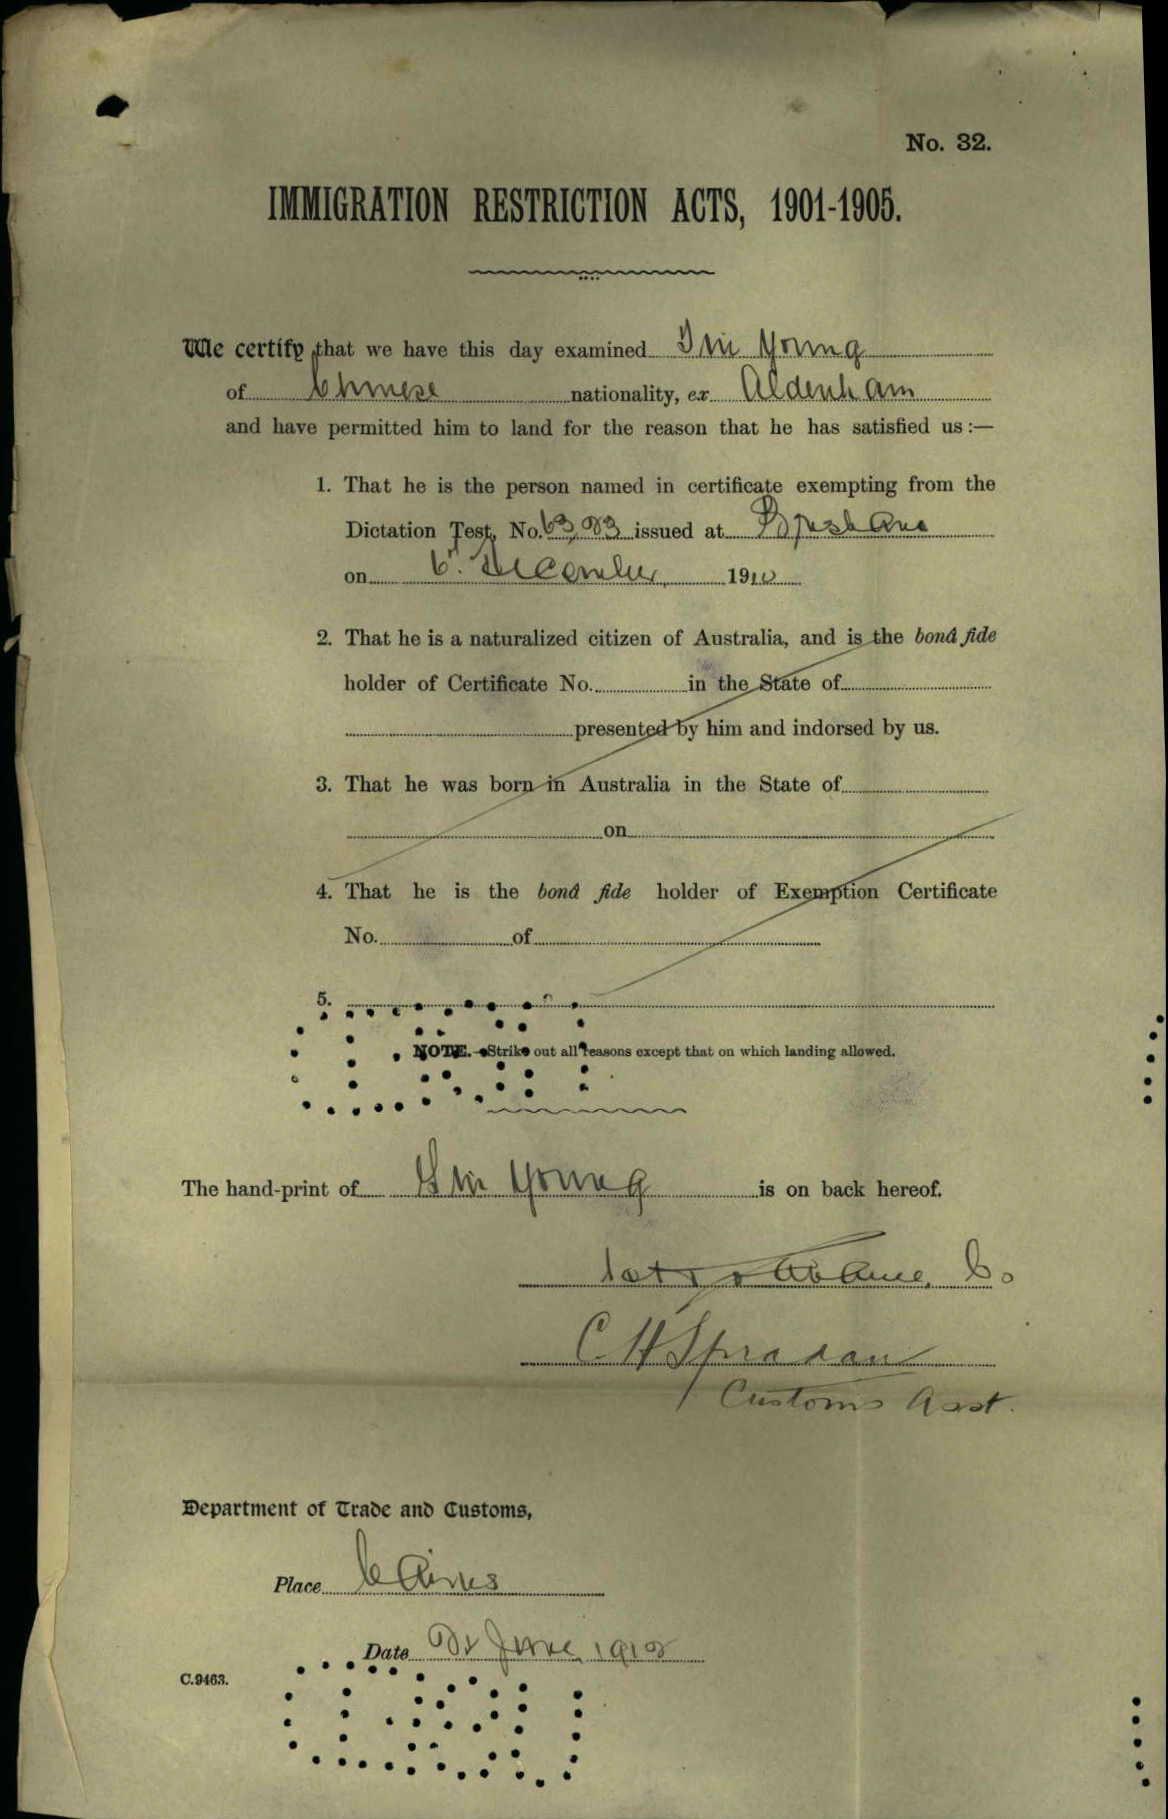 No. 32.
IMMIGRATION RESTRICTION ACTS, 1901-1905.
We certify that we have this day examined Young
of Chinese nationality, ex Aldenham
and have permitted him to land for the reason that he has satisfied us :—
1. That he is the person named in certificate exempting from the
Dictation Test, No. issued at Brisbane
on 6th December 1910
2. That he is a naturalized citizen of Australia, and is the bonâ fide
holder of Certificate No. in the State of
presented by him and indorsed by us.
3. That he was born in Australia in the State of
on
4. That he is the bonâ fide holder of Exemption Certificate
No. of
5.
NOTE.—Strike out all reasons except that on which landing allowed.
The hand-print of Young is on back hereof.
C. H. Spradau
Customs Asst.
Department of Trade and Customs,
Place Cairns
Date June 1912
C.9463.